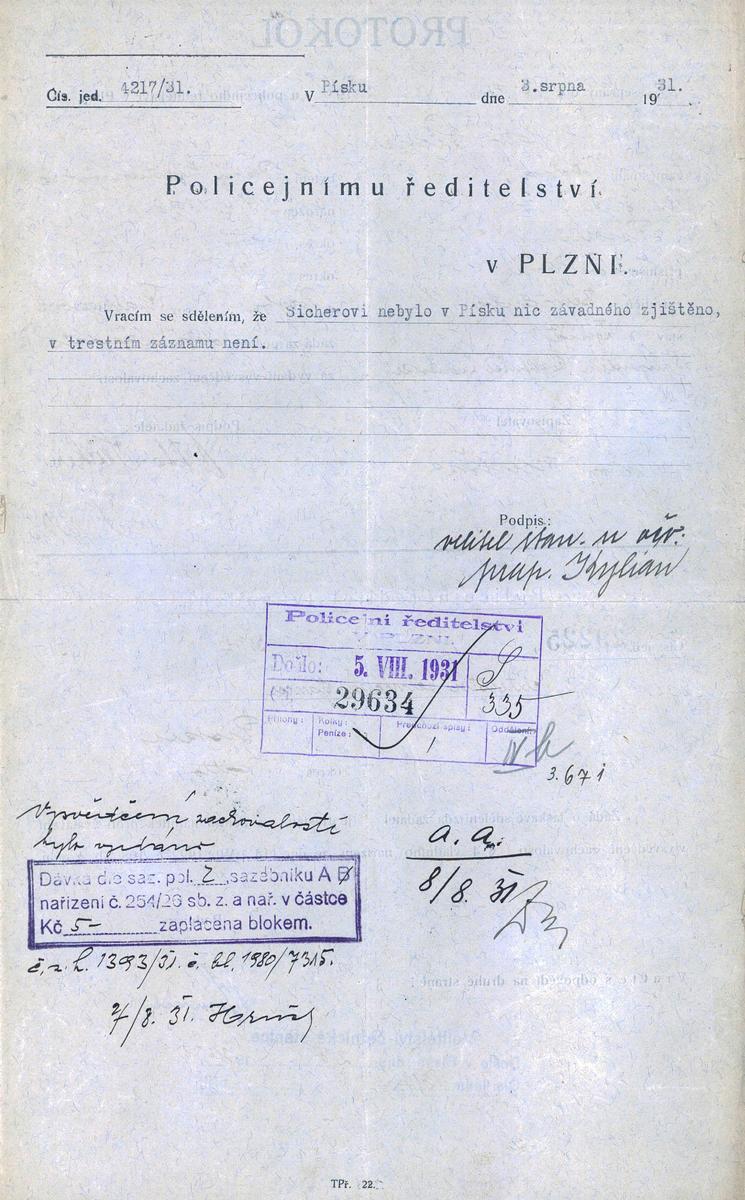 Čís. jed. 4217/31. V Písku dne 3.srpna 1931.
Policejnímu ředitelství
v PLZNI.
Vracím se sdělením, že Sicherovi nebylo v Písku nic závadného zjištěno,
v trestním záznamu není.
Podpis:
velitel stan.
prap. Kylian
Policejní ředitelství
V PLZNI.
Došlo: 5. VIII. 1931 S
Čj. 29634 335
Přílohy: Kolky: Peníze: Předchozí spisy: 1 Oddělení: IV b
3.671
Vysvědčení zachovalosti
bylo vydáno
a. a.
8/8. 31
Dávka dle saz. pol. 2 ,sazebníku A B
nařízení č. 254/26 sb. z. a nař. v částce
Kč 5- zaplacena blokem.
č. z. h. 1393/31. č. bl. 1980/7315.
7/8. 31.
TPř. 22.